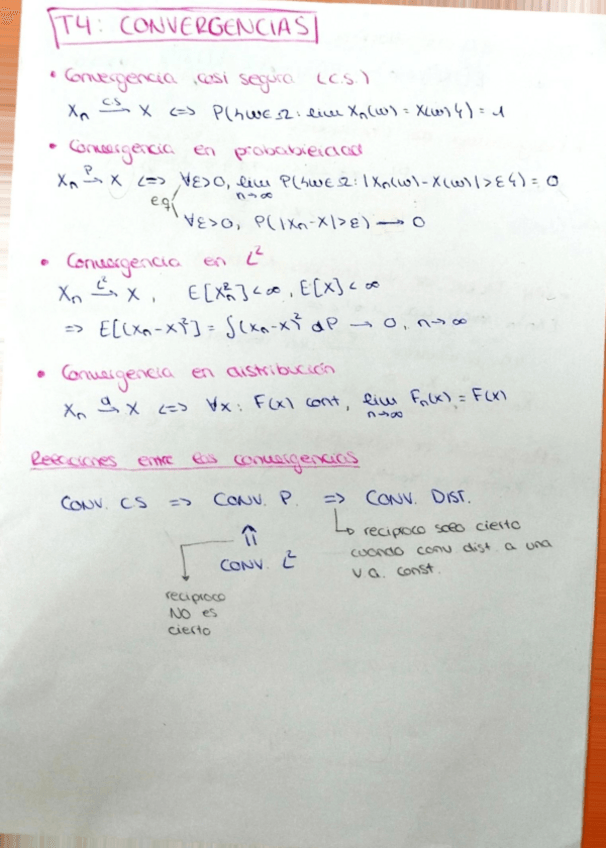 T4: CONVERGENCIAS
• Convergencia casi segura (c.s.)
Xn →(cs) X <=> P({ω∈Ω: lim Xn(ω) = X(ω)}) = 1
• Convergencia en probabilidad
Xn →(P) X <=> ∀ε>0, lim n→∞ P({ω∈Ω: |Xn(ω)-X(ω)|>ε}) = 0
eq/ ∀ε>0, P(|Xn-X|>ε) → 0
• Convergencia en L²
Xn →(L²) X, E[Xn²]<∞, E[X]<∞
=> E[(Xn-X)²] = ∫(Xn-X)² dP → 0, n→∞
• Convergencia en distribución
Xn →(d) X <=> ∀x: F(x) cont, lim n→∞ Fn(x) = F(x)
Relaciones entre las convergencias
CONV. CS => CONV. P. => CONV. DIST.
↳ reciproco solo cierto
cuando conv dist. a una
v.a. const.
⇑
CONV. L²
reciproco
NO es
cierto